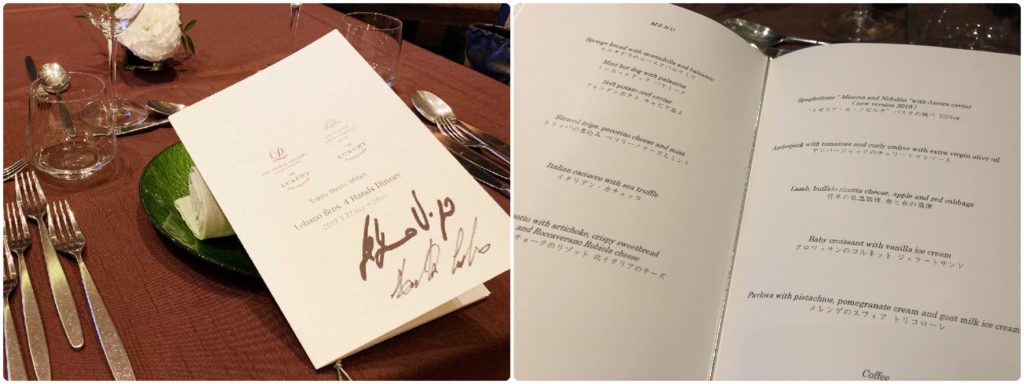 LUXURY
LUXURY
Tokyo Meets Milan
Lebano Bros. 4 Hands Dinner
MENU
Sponge bread with mortadella and balsamic
Mini hot dog with palamita
ミニホットドッグ パラミータ
Soft potato and caviar
フォンダンポテト キャビア添え
Stewed tripe, pecorino cheese and mint
トリッパの煮込み ペコリーノチーズとミント
Italian caciucco with sea truffle
イタリアン・カチュッコ
otto with artichoke, crispy sweetbread
and Roccaverano Robiola cheese
チョークのリゾット 北イタリアのチーズ
Spaghettone " Miseria and Nobilita "with Asetra caviar
( new version 2019 )
"ミゼリア・エ・ノビルタ" パスタの調べ 2019ver.
Amberjack with tomatoes and curly endive with extra virgin olive oil
アンバージャックのキャリートマトソース
Lamb, buffalo ricotta cheese, apple and red cabbage
仔羊の低温調理
Baby croissant with vanilla ice cream
クロワッサンのコルネット ジェラートサンド
Pavlova with pistachios, pomegranate cream and goat milk ice cream
メレンゲのスフィア トリコローレ
Coffee